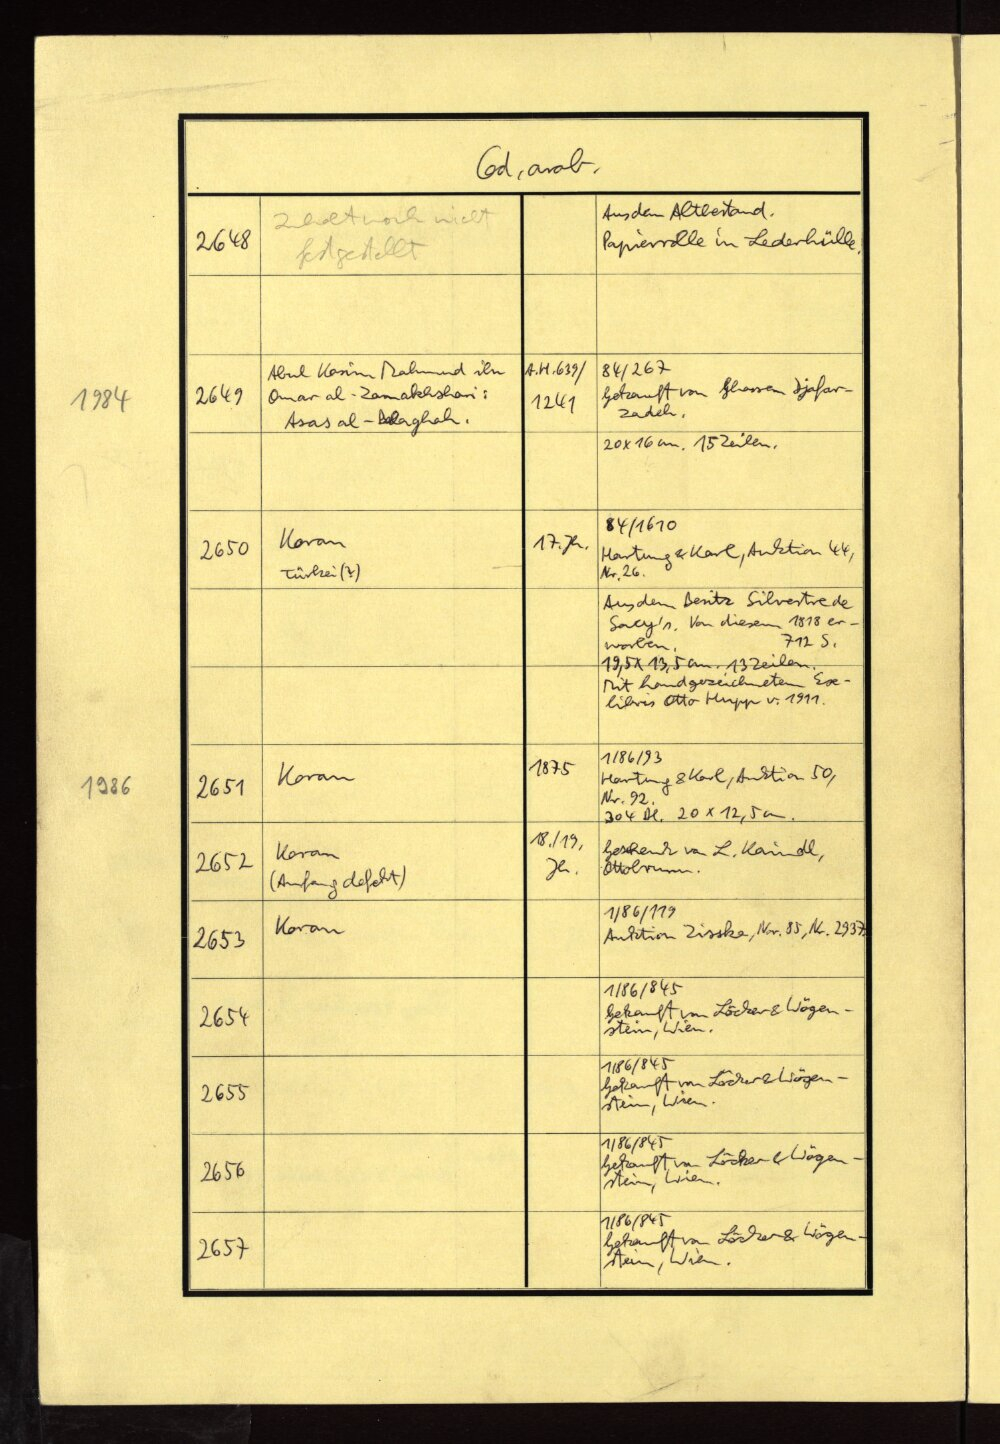 Cod. arab.
2648
Inhalt noch nicht
festgestellt
Aus dem Altbestand.
Papierrolle in Lederhülle.
1984
2649
Abul Kasim Mahmud ibn
Omar al-Zamakhshari:
Asas al-Balaghah.
A.H. 639/
1241
84/267
Gekauft von Ghassem Djafar-
zadeh.
20x16 cm. 15 Zeilen.
2650
Koran
Türkei (?)
17. Jh.
84/1610
Hartung & Karl, Auktion 44,
Nr. 26.
Aus dem Besitz Silvestre de
Sacy's. Von diesem 1818 er-
worben. 712 S.
19,5 x 13,5 cm. 13 Zeilen.
Mit handgezeichnetem Exe-
libris Otto Hupp v. 1911.
1986
2651
Koran
1875
1/86/93
Hartung & Karl, Auktion 50,
Nr. 92.
304 Bl. 20 x 12,5 cm.
2652
Koran
(Anfang defekt)
18./19.
Jh.
Geschenk von L. Kaindl,
Ottobrunn.
2653
Koran
1/86/119
Auktion Zisska, Nr. 85, Nr. 2937
2654
1/86/845
Gekauft von Löcker & Wögen-
stein, Wien.
2655
1/86/845
Gekauft von Löcker & Wögen-
stein, Wien.
2656
1/86/845
Gekauft von Löcker & Wögen-
stein, Wien.
2657
1/86/845
Gekauft von Löcker & Wögen-
stein, Wien.